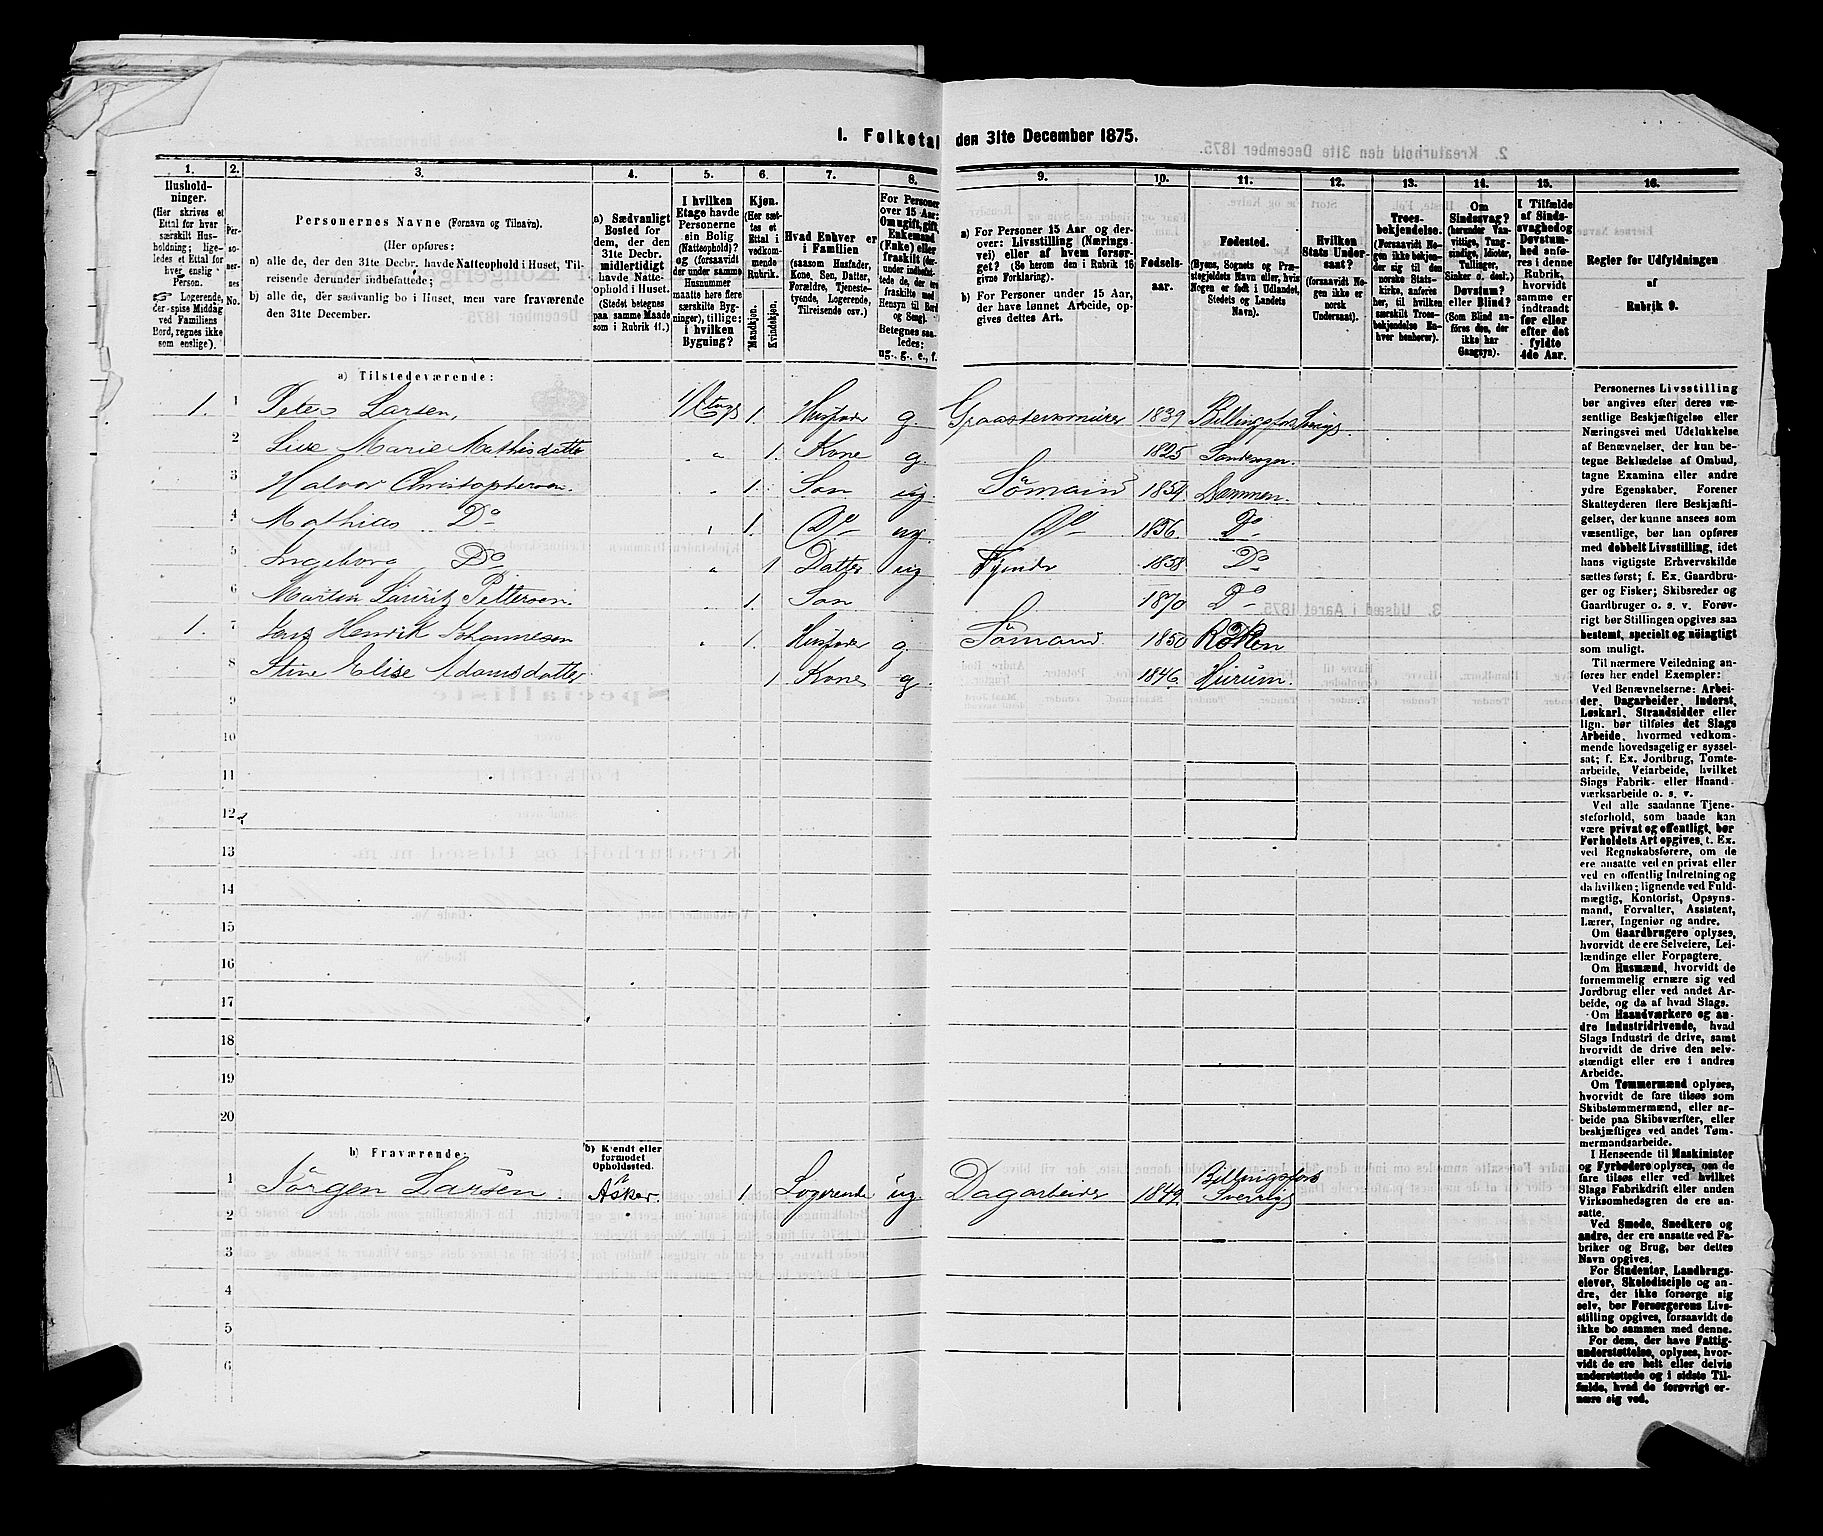 I. Folketal den 31te December 1875.
1. 2. 3. 4. 5. 6. 7. 8. 9. 10. 11. 12. 13. 14. 15. 16.
Husholdninger. (Her skrives et Ettal for hver særskilt Husholdning; ligeledes et Ettal for hver enslig Person. Logerende, der spise Middag ved Familiens Bord, regnes ikke som enslige).
Personernes No.
Personernes Navne (Fornavn og Tilnavn).
(Her opføres:
a) alle de, der den 31te Decbr. havde Natteophold i Huset, Tilreisende derunder indbefattede;
b) alle de, der sædvanlig bo i Huset, men vare fraværende den 31te December.
a) Sædvanligt Bosted for dem, der den 31te Decbr. midlertidigt havde Natteophold i Huset. (Stedet betegnes paa samme Maade som i Rubrik 11.)
I hvilken Etage havde Personerne sin Bolig (Natteophold)? og (forsaavidt der under samme Husnummer maatte høre flere særskilte Bygninger), tillige: i hvilken Bygning?
Kjøn. (Her sættes et Ettal i vedkommende Rubrik.
Mandkjøn. Kvindekjøn.
Hvad Enhver er i Familien (saasom Husfader, Kone, Søn, Datter, Forældre, Tjenestetyende, Logerende, Tilreisende osv.)
For Personer over 15 Aar: Om ugift, gift, Enkemand (Enke) eller fraskilt (derunder indbefattede de, der ere fraskilte med Hensyn til Bord og Seng). Betegnes saaledes: ug., g., e., f.
a) For Personer 15 Aar og derover: Livsstilling (Næringsvei) eller af hvem forsørget? (Se herom den i Rubrik 16 givne Forklaring).
b) For Personer under 15 Aar, der have lønnet Arbeide, opgives dettes Art.
Fødselsaar.
Fødested. (Byens, Sognets og Præstegjeldets Navn eller, hvis Nogen er født i Udlandet, Stedets og Landets Navn).
Hvilken Stats Undersaat? (forsaavidt Nogen ikke er norsk Undersaat).
Troesbekjendelse. (Forsaavidt Nogen ikke bekjender sig til den norske Statskirke, anføres her, til hvilken særskilt Troesbekjendelse Enhver henhører).
Om Sindssvag? (herunder Vanvittige, Tungsindige, Idioter, Tullinger, Sinker o. desl.). Døvstum? eller Blind? (Som Blind anføres den, der ikke har Gangsyn).
I Tilfælde af Sindssvaghed og Døvstumhed anføres i denne Rubrik, hvorvidt samme er indtraadt før eller efter det fyldte 4de Aar.
Regler for Udfyldningen af Rubrik 9.
a) Tilstedeværende:
1. 1 Peter Larsen, 1/Etage 1. Husfader g. 1839 Billingsfors Sverige
2 Marie Mathisdatter " 1. Kone g. 1825
3 Halvor Christophersen. " 1. Søn ug. Sömand 1854.
4 Mathias Do " 1. Do ug Do 1856. Do
5 Ingeborg Do " 1 Datter ug 1858 Do
6 Martin Lauritz Pettersen. " 1. Søn 1870 Do
1. 7 Lars Henrik Johannesen " 1. Husfader g. Sömand. 1850 Röken
8 Stine Elise Adamsdatter 1 Kone g. 1846. Hurum.
9
10
11
12
13
14
15
16
17
18
19
20
b) Fraværende:
b) Kjendt eller formodet Opholdssted.
1 Jörgen Larsen. Asker 1 Logerende ug. Dagarbeider 1849. Billingsfors Sverrige
2
3
4
5
6
Personernes Livsstilling bør angives efter deres væsentlige Beskjæftigelse eller Næringsvei med Udelukkelse af Benævnelser, der kun betegne Beklædelse af Ombud, tagne Examina eller andre ydre Egenskaber. Forener Skatteyderen flere Beskjæftigelser, der kunne ansees som væsentlige, bør han opføres med dobbelt Livsstilling, idet hans vigtigste Erhvervskilde sættes først; f. Ex. Gaardbruger og Fisker; Skibsreder og Gaardbruger o. s. v. Forøvrigt bør Stillingen opgives saa bestemt, specielt og nøiagtigt som muligt.
Til nærmere Veiledning anføres her endel Exempler:
Ved Benævnelserne: Arbeider, Dagarbeider, Inderst, Løskarl, Strandsidder eller lign. bør tilføies det Slags Arbeide, hvormed vedkommende hovedsagelig er sysselsat; f. Ex. Jordbrug, Tomtearbeide, Veiarbeide, hvilket Slags Fabrik- eller Haandværksarbeide o. s. v.
Ved alle saadanne Tjenesteforhold, som baade kan være privat og offentligt, bør Forholdets Art opgives, t. Ex. ved Regnskabsførere, om de ere ansatte ved en privat eller ved en offentlig Indretning og da hvilken; lignende ved Fuldmægtig, Kontorist, Opsynsmand, Forvalter, Assistent, Lærer, Ingeniør og andre.
Om Gaardbrugere oplyses, hvorvidt de ere Selveiere, Leilændinge eller Forpagtere.
Om Husmænd, hvorvidt de fornemmelig ernære sig ved Jordbrug eller ved andet Arbeide, og da af hvad Slags.
Om Haandværkere og andre Industridrivende, hvad Slags Industri de drive, samt hvorvidt de drive den selvstændigt eller ere i andres Arbeide.
Om Tømmermænd oplyses, hvorvidt de fare tilsøs som Skibstømmermænd, eller arbeide paa Skibsværfter, eller beskjæftiges ved andet Tømmermandsarbeide.
I Henseende til Maskinister og Fyrbødere oplyses, om de fare tilsøs eller ved hvilket Slags Fabrikdrift eller anden Virksomhedsgren de ere ansatte.
Ved Smede, Snedkere og andre, der ere ansatte ved Fabriker og Brug, bør dettes Navn opgives.
For Studenter, Landbrugselever, Skoledisciple og andre, der ikke forsørge sig selv, bør Forsørgerens Livsstilling opgives, forsaavidt de ikke bo sammen med denne.
For dem, der have Fattigunderstøttelse, oplyses, hvorvidt de ere helt eller delvis understøttede og i sidste Tilfælde, hvad de forøvrigt ernære sig ved.